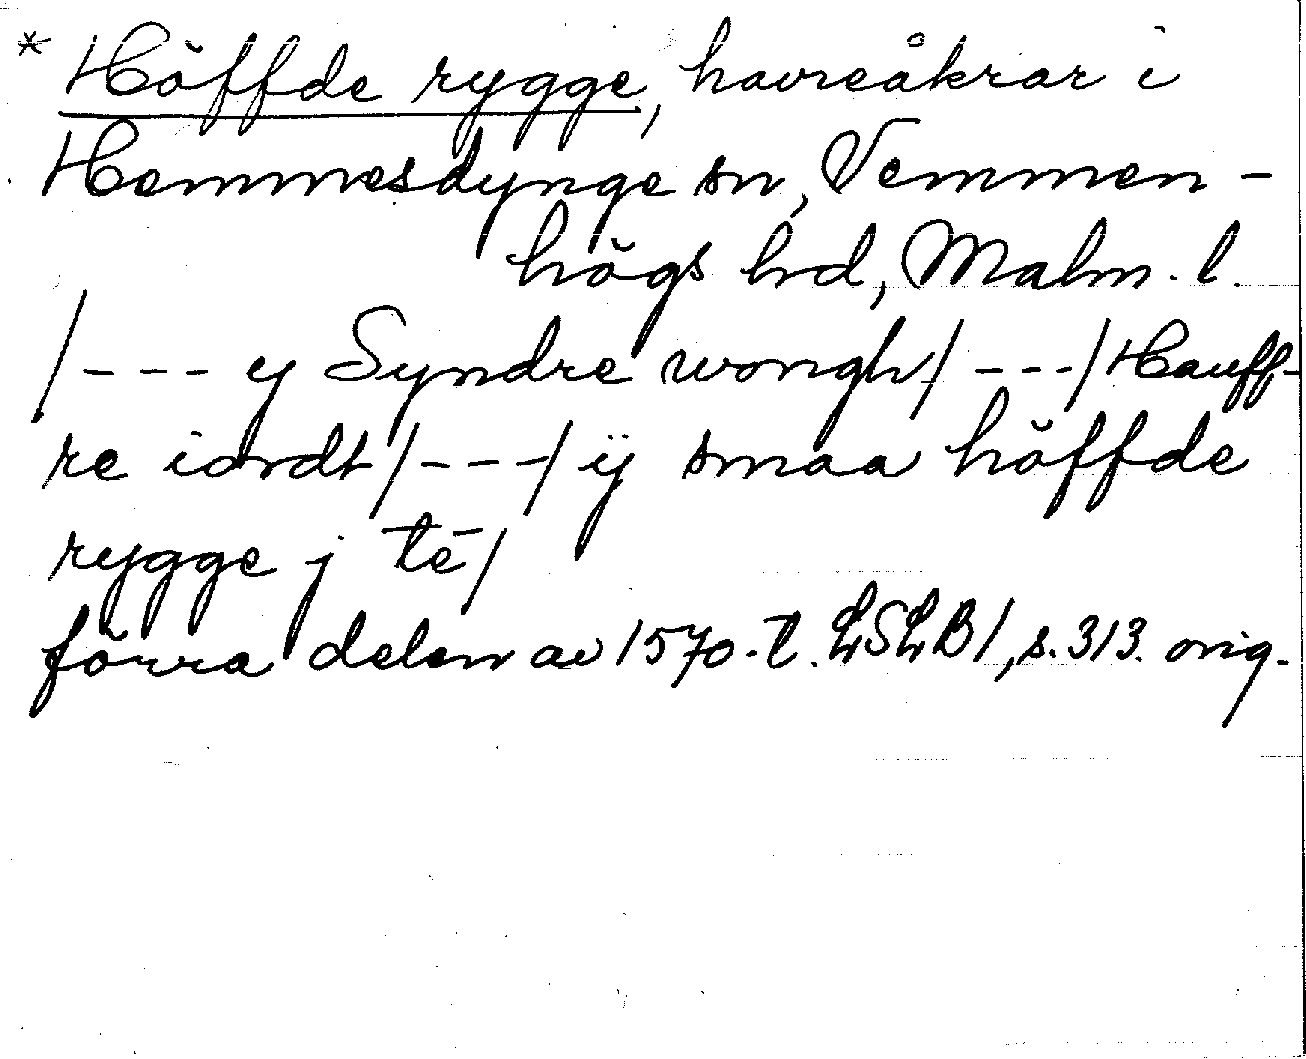 * Höffde rygge, havreåkrar i
Hemmesdynge sn, Vemmen-
högs hd, Malm. l.
/--- y Syndre wongh/---/Hauff-
re iordt/---/ ij smaa höffde
rygge j tē/
förra delen av 1570-t. LSLB1, s. 313. orig.